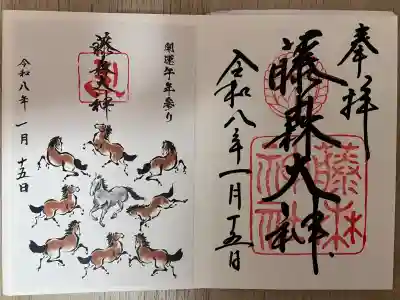 奉拝
藤森大神
令和八年一月十五日
藤森
神社
開運午年参り
藤森大神
令和八年
一月
十五日